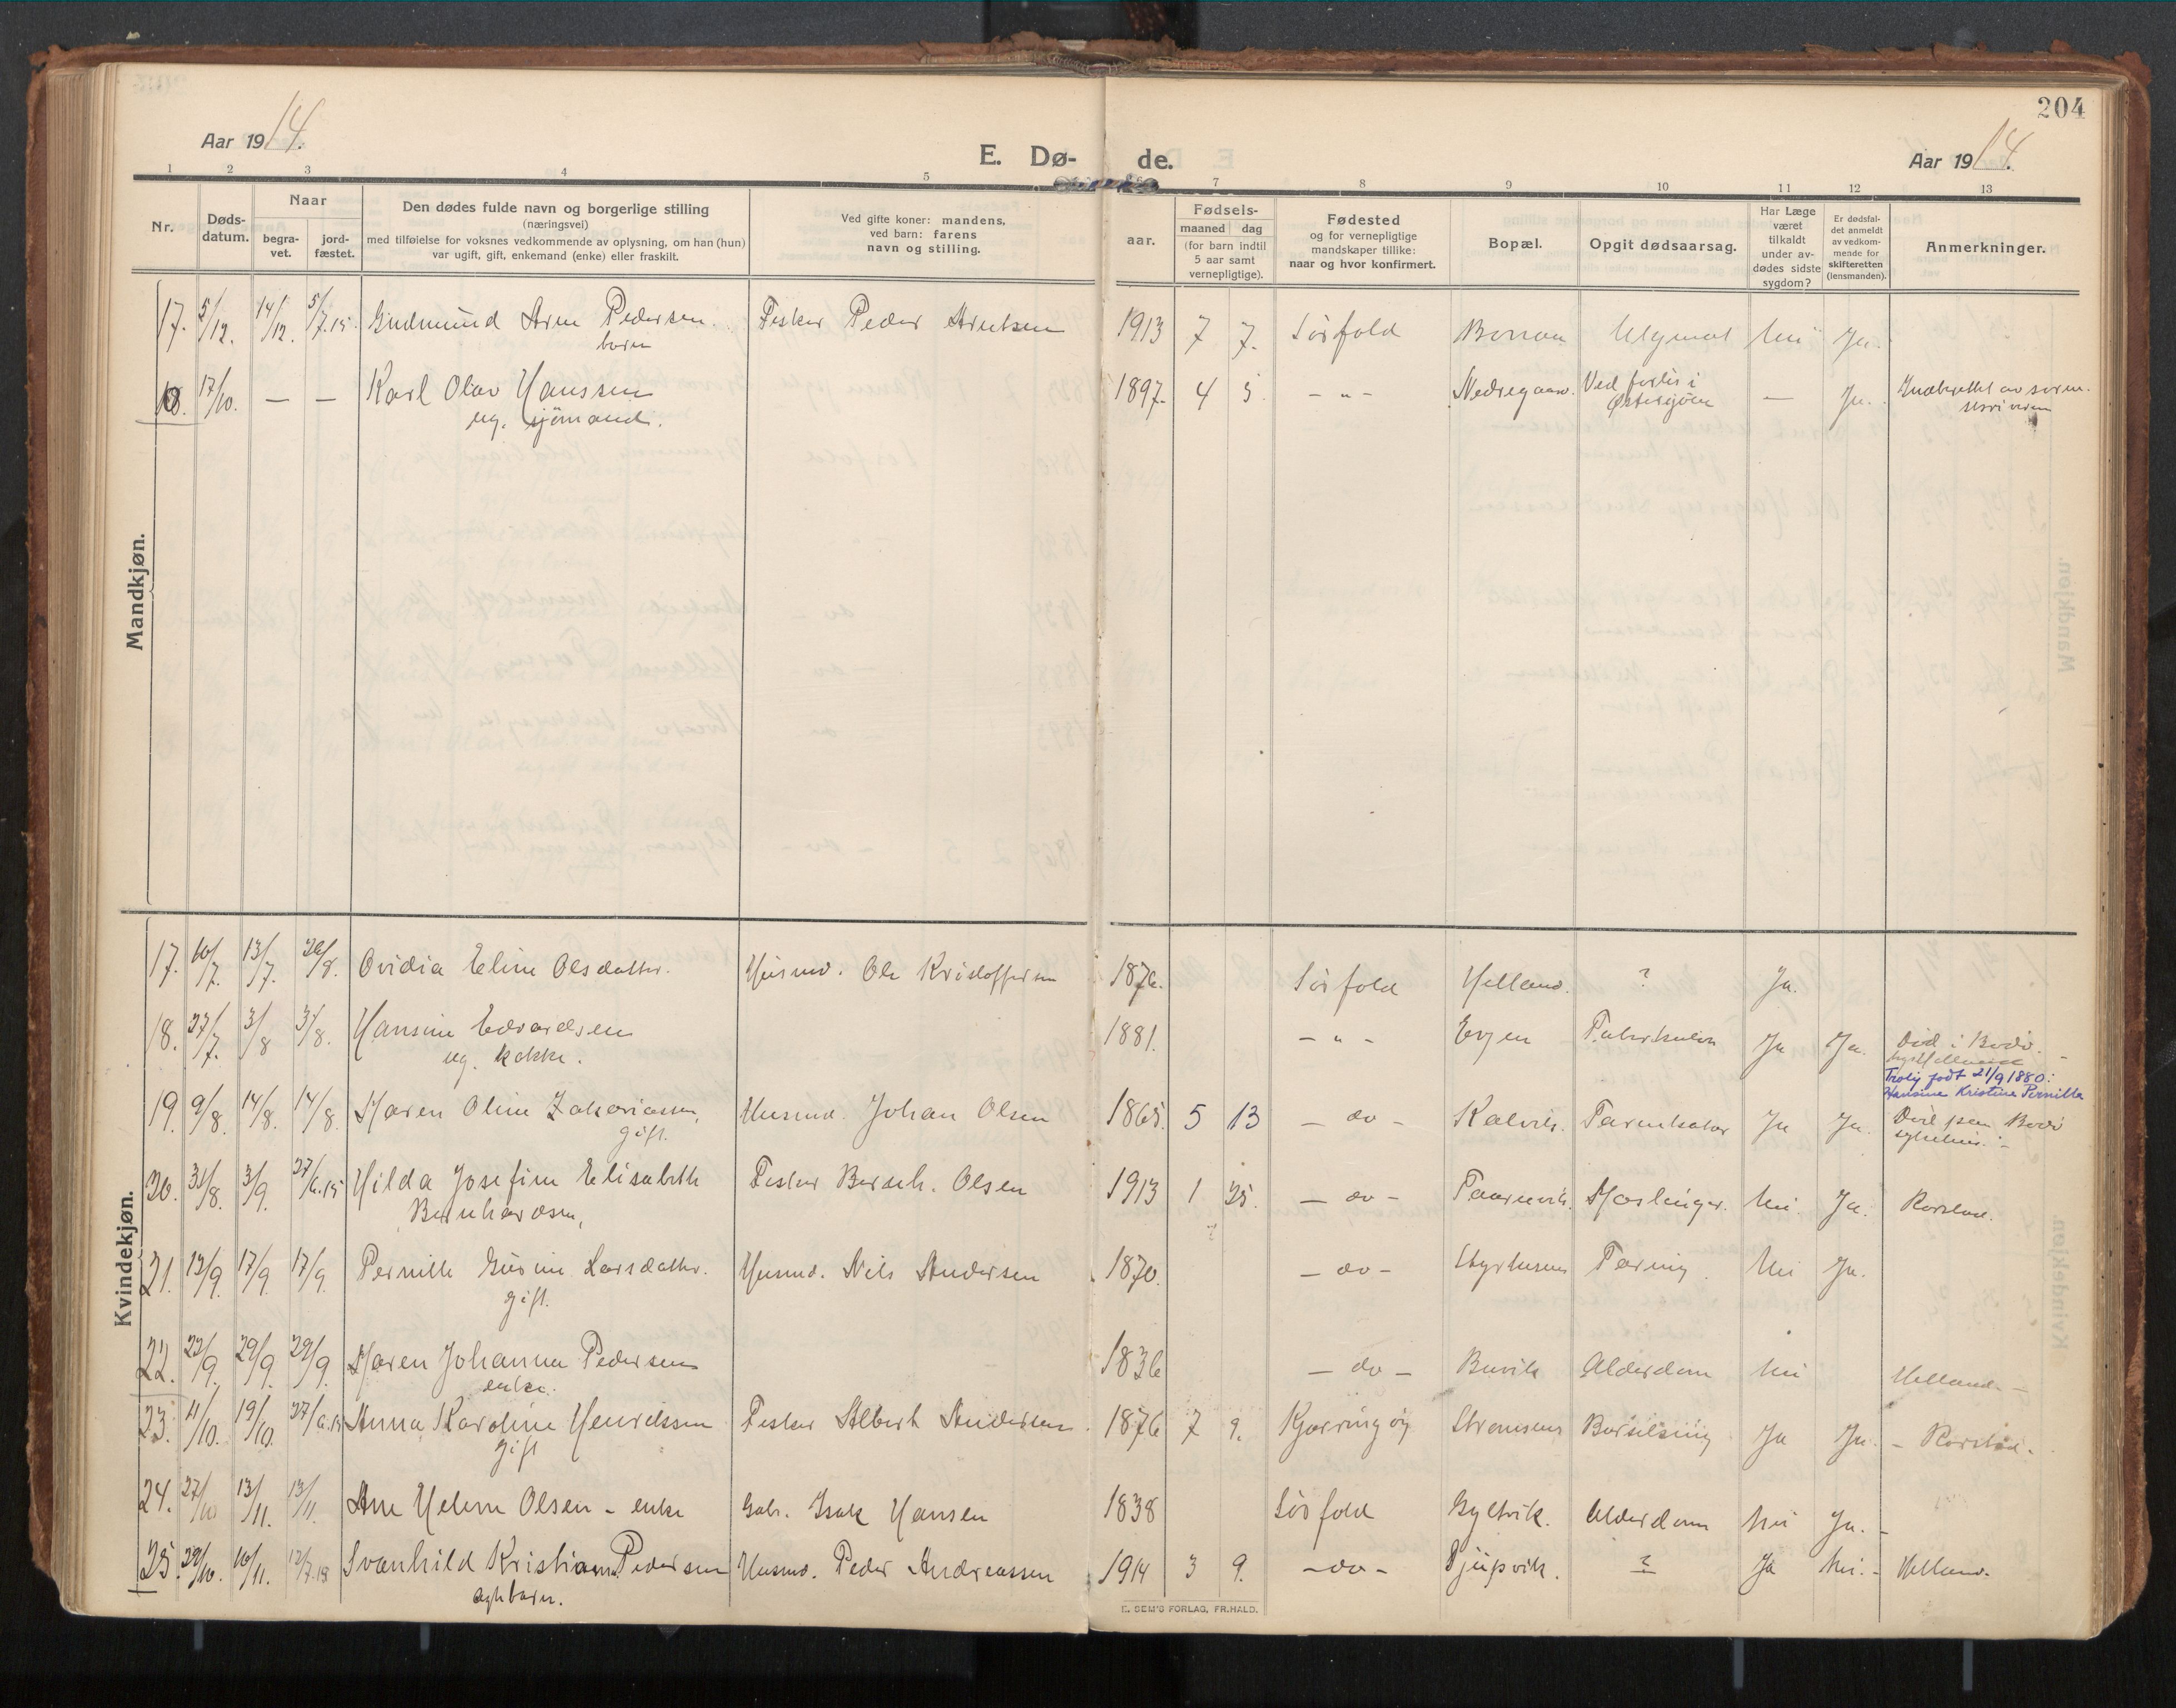 204
Aar 1914.
E. Dø-
de.
Aar 1914.
1 2 3 4 5 6 7 8 9 10 11 12 13
Nr.
Døds-
datum.
Naar
begra-
vet.
jord-
fæstet.
Den dødes fulde navn og borgerlige stilling
(næringsvei)
med tilføielse for voksnes vedkommende av oplysning, om han (hun)
var ugift, gift, enkemand (enke) eller fraskilt.
Ved gifte koner: mandens,
ved barn: farens
navn og stilling.
aar.
Fødsels-
maaned dag
(for barn indtil
5 aar samt
vernepligtige).
Fødested
og for vernepligtige
mandskaper tillike:
naar og hvor konfirmert.
Bopæl.
Opgit dødsaarsag.
Har Læge
været
tilkaldt
under av-
dødes sidste
sygdom?
Er dødsfal-
det anmeldt
av vedkom-
mende for
skifteretten
(lensmanden).
Anmerkninger.
Mandkjøn.
17. 5/12. 14/12. 5/7.15. Gudmund Arne Pedersen. Fisker Peder Arntsen 1913 7 7. Sörfold Ulymat Nei Ja.
barn
18. 17/10. — — Karl Olav Hanssen 1897. 4 5. - " - Nedregaard. Ved forlis i — Ja. Indberettet av sorен-
ug. sjömand. Østersjöen skriveren
Kvindekjøn.
17. 10/7. 13/7. 26/8. Ovidia Eline Olsdatter. Husmd. Ole Kristoffersen 1876. Sörfold Helland. ? Ja.
18. 27/7. 3/8 3/8. Hansine Edvardsen 1881. - " - Evjen Tuberkulose Ja Ja. Död i Bodö.
ug. kokke.
Trolig født 21/9 1880:
Hansine Kristine Pernille
19. 9/8. 14/8. 14/8. Maren Oline Zakariassen, Husmd. Johan Olsen 1865. 5 13 - do - Kalvik. Ja Ja. Död paa Bodö
gift. sykehus.
20. 31/8. 3/9. 27/6.15 Hilda Josefine Elisabeth Fisker Bernh. Olsen 1913 1 25. - do - Taarnvik. Meslinger. Nei. Ja. Rörstad.
Bernhardsen,
21. 13/9. 17/9. 17/9. Pernille Gusine Larsdatter. Husmd. Nils Andersen 1870. - do - Styrkesnes Tæring. Nei Ja.
gift.
22. 22/9. 29/9. 29/9. Maren Johanna Pedersen 1836 - do - Buvik Alderdom Nei Helland. -
enke.
23. 11/10. 19/10. 27/6.15 Anna Karoline Henrikssen Fisker Albert Andersen. 1876 7 9. Kjærringöy Strömsnes Barselseng Ja Ja. - Rörstad.
gift
24. 27/10 13/11. 13/11. Ane Helene Olsen - enke Gabr. Isak Hansen 1838 Sörfold Gyltvik. Alderdom Nei Ja. -
25. 29/10. 10/11. 12/7.18 Svanhild Kristiane Pedersen Husmd. Peder Andreassen 1914 3 9. - do - Djupvik. ? Ja Nei. - Helland.
ægtebarn.
E. SEM'S FORLAG, FR.HALD.